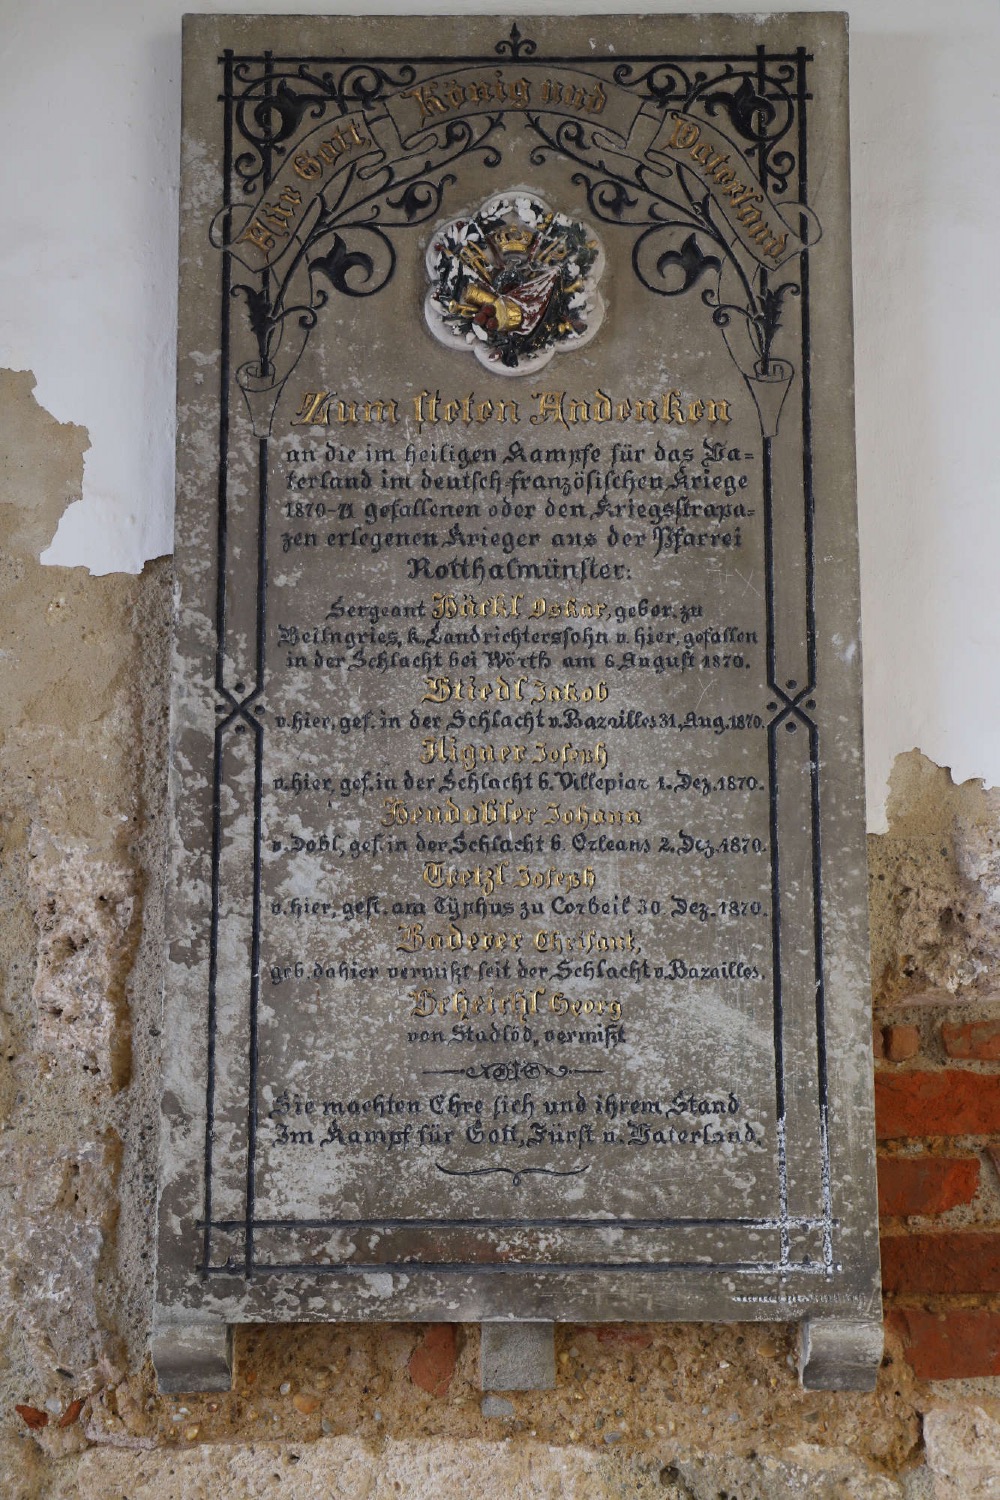 Für Gott König und Vaterland
Zum steten Andenken
an die im heiligen Kampfe für das Va-
terland im deutsch-französischen Kriege
1870-71 gefallenen oder den Kriegsstrapa-
zen erlegenen Krieger aus der Pfarrei
Rotthalmünster:
Sergeant Häckl Oskar, gebor. zu
Beilngries, k. Landrichterssohn v. hier, gefallen
in der Schlacht bei Wörth am 6. August 1870.
Stiedl Jakob
v. hier, gef. in der Schlacht v. Bazailles 31. Aug. 1870.
Aigner Joseph
v. hier, gef. in der Schlacht b. Villepiar 1. Dez. 1870.
Hendobler Johann
v. Dobl, gef. in der Schlacht b. Orleans 2. Dez. 1870.
Tietzl Joseph
v. hier, gest. am Typhus zu Corbeil 30. Dez. 1870.
Baderer Chrisant,
geb. dahier vermißt seit der Schlacht v. Bazailles.
Beheichl Georg
von Stadlöd, vermißt
Sie machten Ehre sich und ihrem Stand
Im Kampf für Gott, Fürst u. Vaterland.